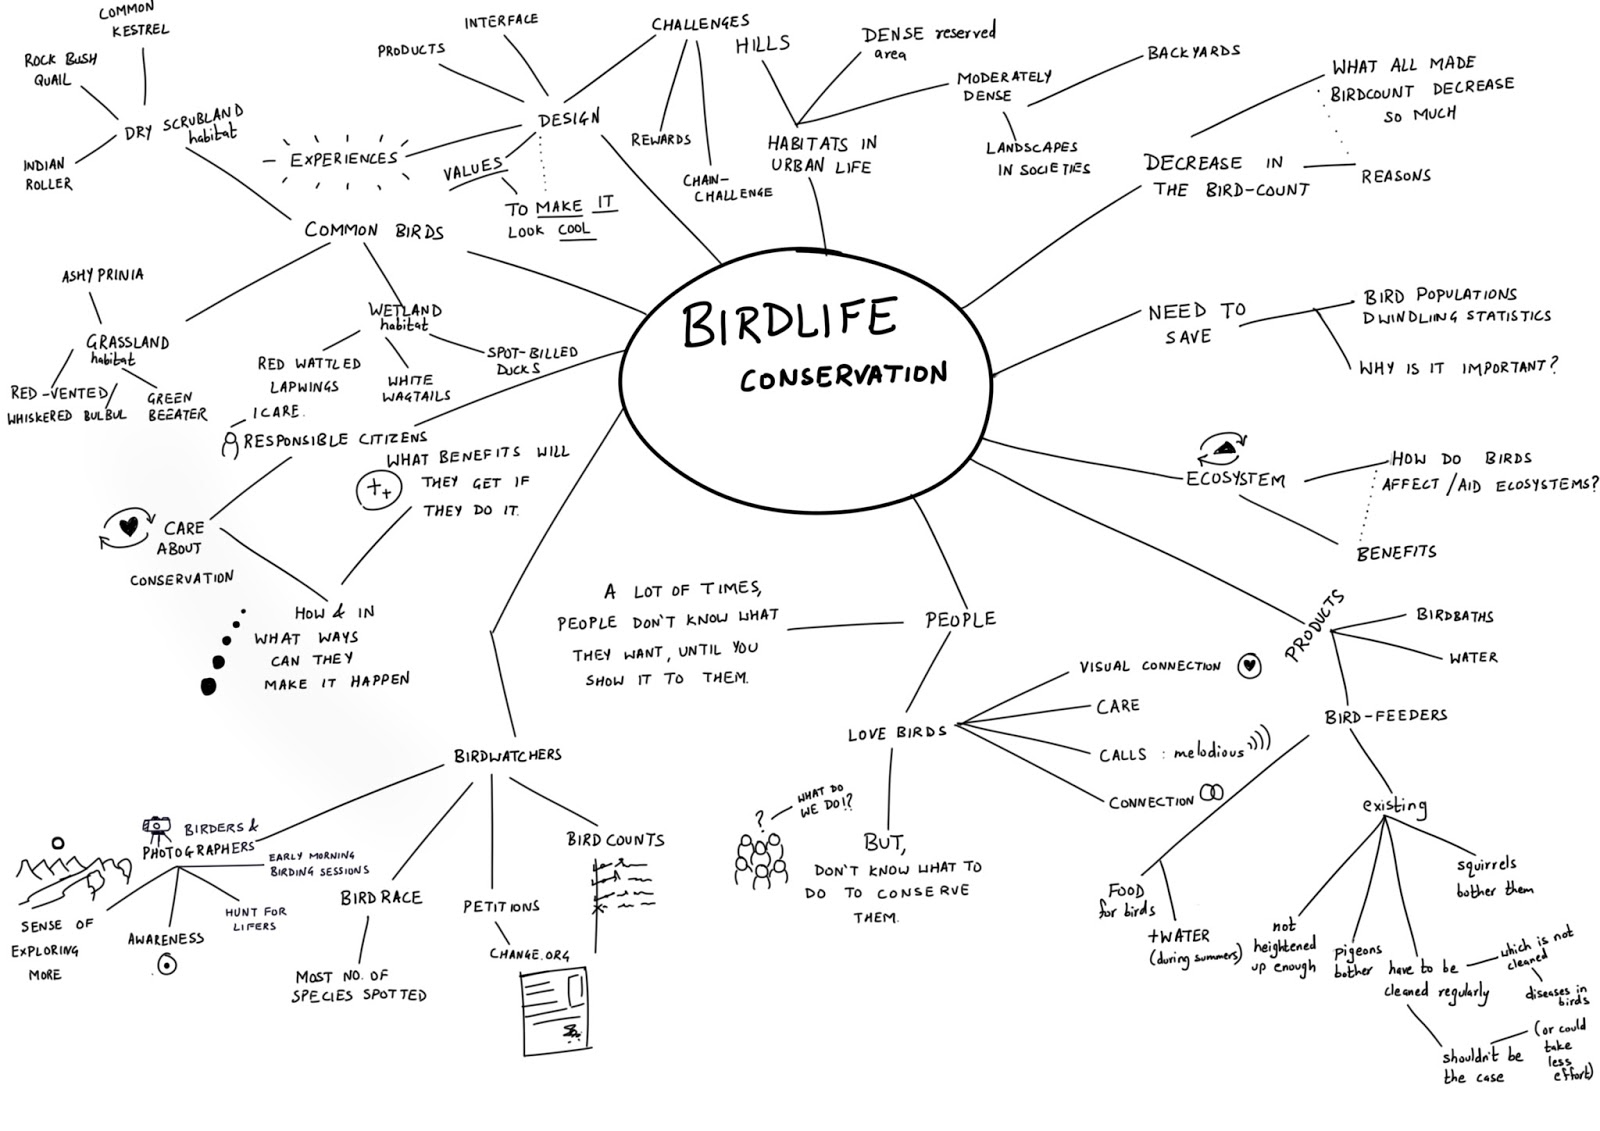 BIRDLIFE
CONSERVATION
COMMON BIRDS
DRY SCRUBLAND
habitat
COMMON
KESTREL
ROCK BUSH
QUAIL
INDIAN
ROLLER
GRASSLAND
habitat
ASHY PRINIA
RED-VENTED/
WHISKERED BULBUL
GREEN
BEEATER
WETLAND
habitat
RED WATTLED
LAPWINGS
WHITE
WAGTAILS
SPOT-BILLED
DUCKS
DESIGN
PRODUCTS
INTERFACE
CHALLENGES
REWARDS
CHAIN-
CHALLENGE
EXPERIENCES
VALUES
TO MAKE IT
LOOK COOL
HABITATS IN
URBAN LIFE
HILLS
DENSE reserved
area
MODERATELY
DENSE
BACKYARDS
LANDSCAPES
IN SOCIETIES
DECREASE IN
THE BIRD-COUNT
WHAT ALL MADE
BIRDCOUNT DECREASE
SO MUCH
REASONS
NEED TO
SAVE
BIRD POPULATIONS
DWINDLING STATISTICS
WHY IS IT IMPORTANT?
ECOSYSTEM
HOW DO BIRDS
AFFECT/AID ECOSYSTEMS?
BENEFITS
PRODUCTS
BIRDBATHS
WATER
BIRD-FEEDERS
FOOD
for birds
+WATER
(during summers)
existing
not
heightened
up enough
pigeons
bother
have to be
cleaned regularly
which is not
cleaned
diseases in
birds
shouldn't be
the case
(or could
take
less
effort)
squirrels
bother them
PEOPLE
A LOT OF TIMES,
PEOPLE DON'T KNOW WHAT
THEY WANT, UNTIL YOU
SHOW IT TO THEM.
LOVE BIRDS
VISUAL CONNECTION
CARE
CALLS : melodious
CONNECTION
BUT,
DON'T KNOW WHAT TO
DO TO CONSERVE
THEM.
?
WHAT DO
WE DO!?
RESPONSIBLE CITIZENS
I CARE.
CARE
ABOUT
CONSERVATION
HOW & IN
WHAT WAYS
CAN THEY
MAKE IT HAPPEN
WHAT BENEFITS WILL
THEY GET IF
THEY DO IT.
BIRDWATCHERS
BIRDERS &
PHOTOGRAPHERS
SENSE OF
EXPLORING
MORE
AWARENESS
HUNT FOR
LIFERS
EARLY MORNING
BIRDING SESSIONS
BIRD RACE
MOST NO. OF
SPECIES SPOTTED
PETITIONS
CHANGE.ORG
BIRD COUNTS